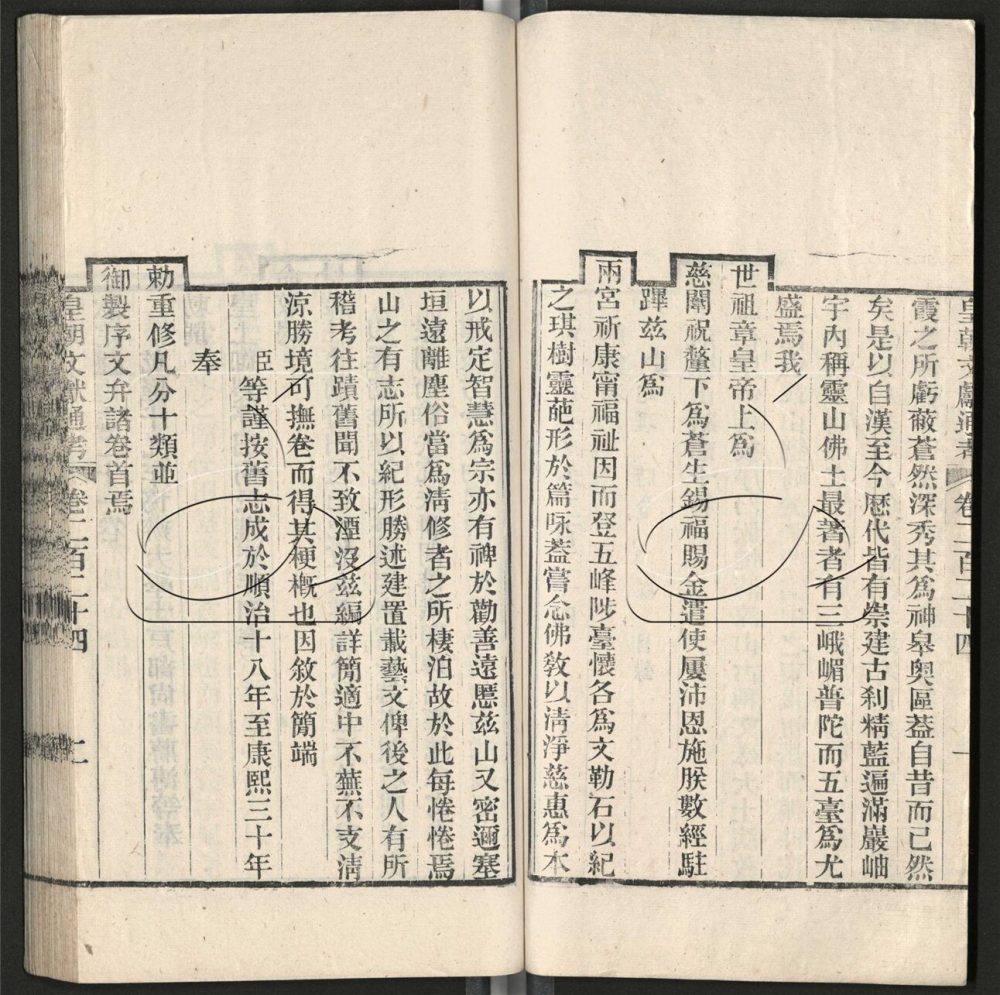 皇朝文獻通考 卷二百二十四 一
霞之所虧蔽蒼然深秀其爲神皋奥區葢自昔而已然
矣是以自漢至今歷代皆有崇建古刹精藍遍滿巖岫
宇內稱靈山佛土最著者有三峨嵋普陀而五臺爲尤
盛焉我
世祖章皇帝上爲
慈闈祝釐下爲蒼生錫福賜金遣使屢沛恩施朕數經駐
蹕兹山爲
兩宮祈康甯福祉因而登五峰陟臺懷各爲文勒石以紀
之琪樹靈葩形於篇咏葢嘗念佛教以清淨慈惠爲本
以戒定智慧爲宗亦有裨於勸善遠慝兹山又密邇塞
垣遠離塵俗當爲清修者之所棲泊故於此每惓惓焉
山之有志所以紀形勝述建置載藝文俾後之人有所
稽考往蹟舊聞不致湮沒兹編詳簡適中不蕪不支清
涼勝境可撫卷而得其梗槪也因敘於簡端
臣等謹按舊志成於順治十八年至康熙三十年
奉
勅重修凡分十類並
御製序文弁諸卷首焉
皇朝文獻通考 卷二百二十四 二